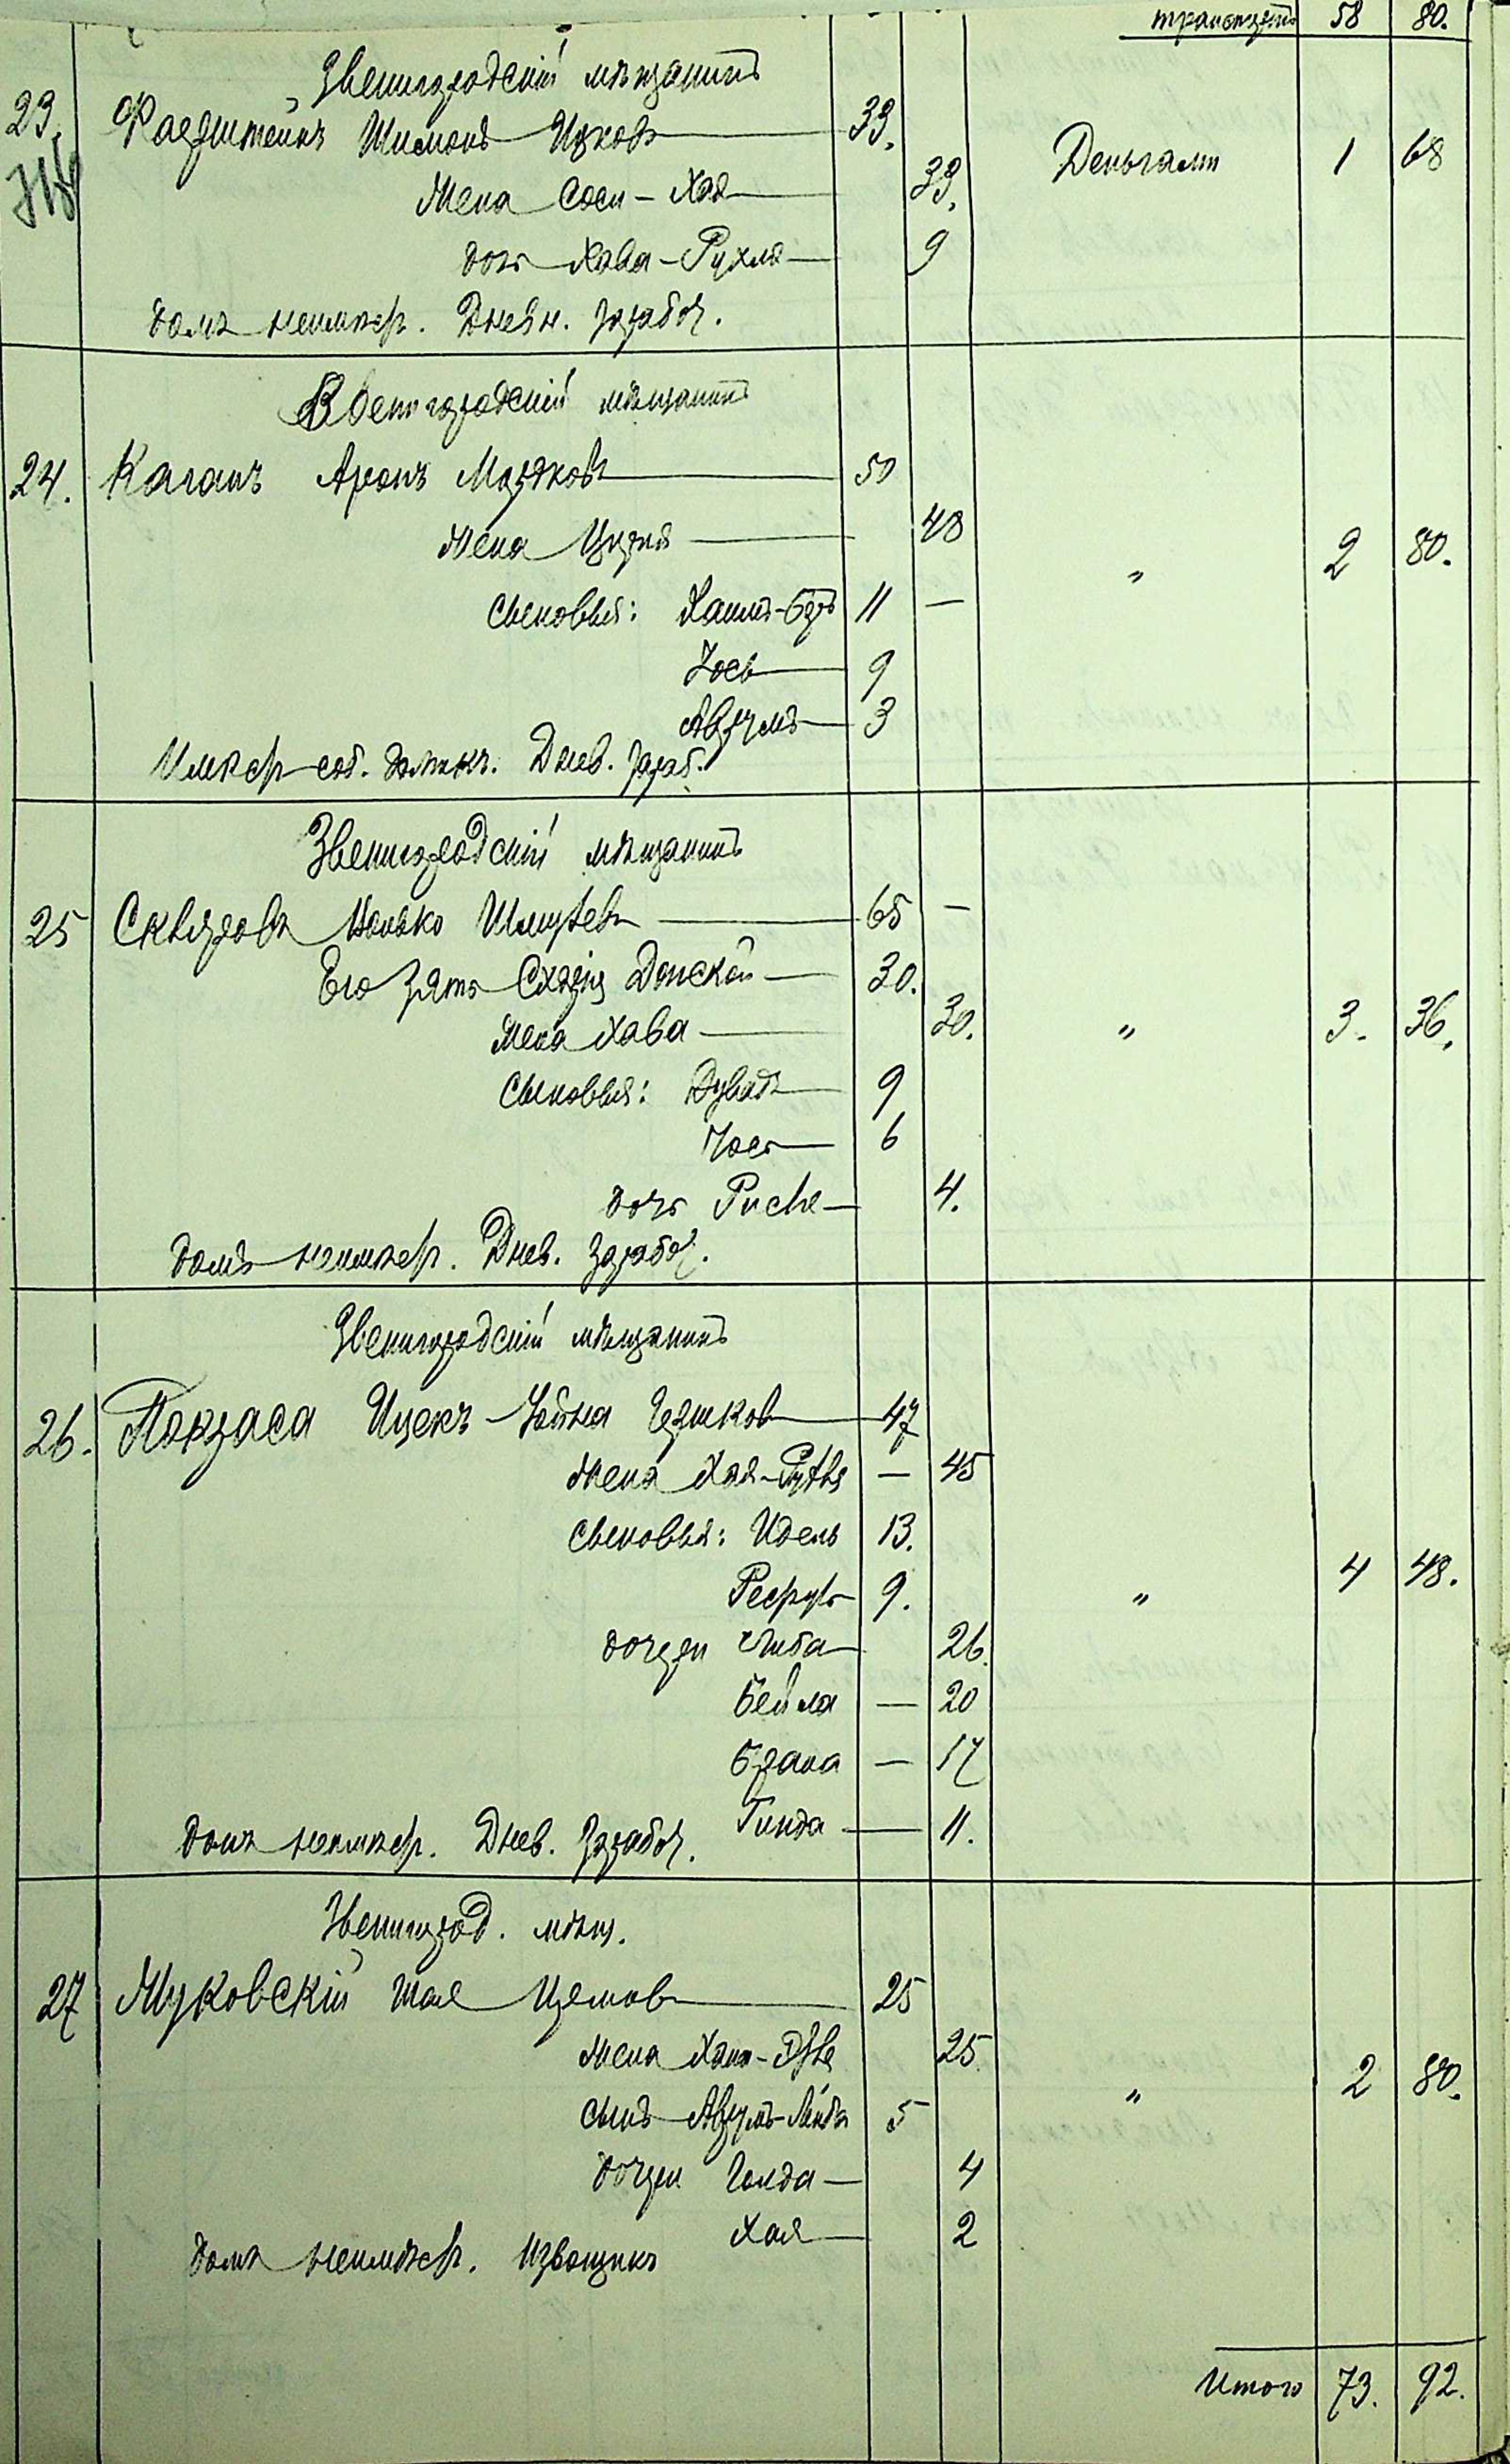 транспортъ 58 80.
Звенигородскій мѣщанинъ
23. Шимонъ Ицковъ 33.
Деньгами 1 68
Жена Соси-Хая 33.
дочь Хава-Рухля 9
домъ неимѣетъ. Дневн. заработ.
Звенигородскій мѣщанинъ
24. Каганъ Аронъ Мошковъ 50
Жена 48
" 2 80.
Сыновья: Хаимъ-Беръ 11 —
Іось 9
Аврумъ 3
Имѣетъ соб. домикъ. Днев. зараб.
Звенигородскій мѣщанинъ
25 Сквирово Волько Шмулевъ 65 —
Его зять Донской 30.
Жена Хава 30.
" 3. 36.
Сыновья: Дувидъ 9
Іось 6
дочь Рися 4.
домъ неимѣетъ. Днев. заработ.
Звенигородскій мѣщанинъ
26. Покраса Ицекъ-Іойна 47
Жена Хая-Рухля — 45
Сыновья: Идель 13.
9.
" 4 48.
дочери 26.
Бейла — 20
Брана — 17
Гинда — 11.
домъ неимѣетъ. Днев. заработ.
Звенигород. мѣщ.
27 Жуковскій Шая 25
Жена 25.
" 2 80.
сынъ Аврумъ-Лейба 5
дочери Голда 4
Хая 2
домъ неимѣетъ. Извощикъ
Итого 73. 92.